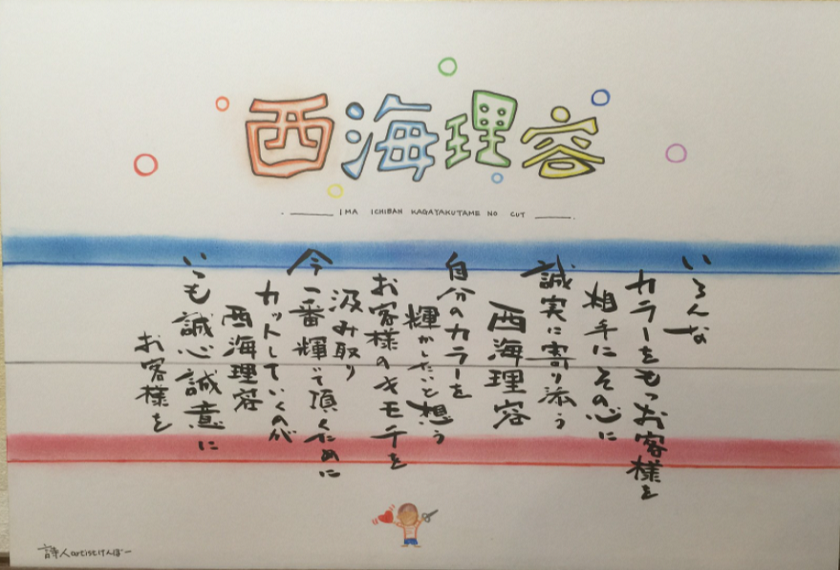 西海理容
IMA ICHIBAN KAGAYAKUTAME NO CUT
いろんな
カラーをもつお客様を
相手にその心に
誠実に寄り添う
西海理容
自分のカラーを
輝かしたいと想う
お客様のキモチを
汲み取り
今一番輝いて頂くために
カットしていくのが
西海理容
いつも誠心誠意に
お客様を
詩人artistけんぼー